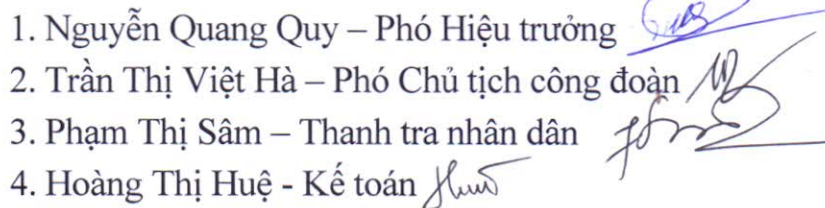 1. Nguyễn Quang Quy – Phó Hiệu trưởng
2. Trần Thị Việt Hà – Phó Chủ tịch công đoàn
3. Phạm Thị Sâm – Thanh tra nhân dân
4. Hoàng Thị Huệ - Kế toán